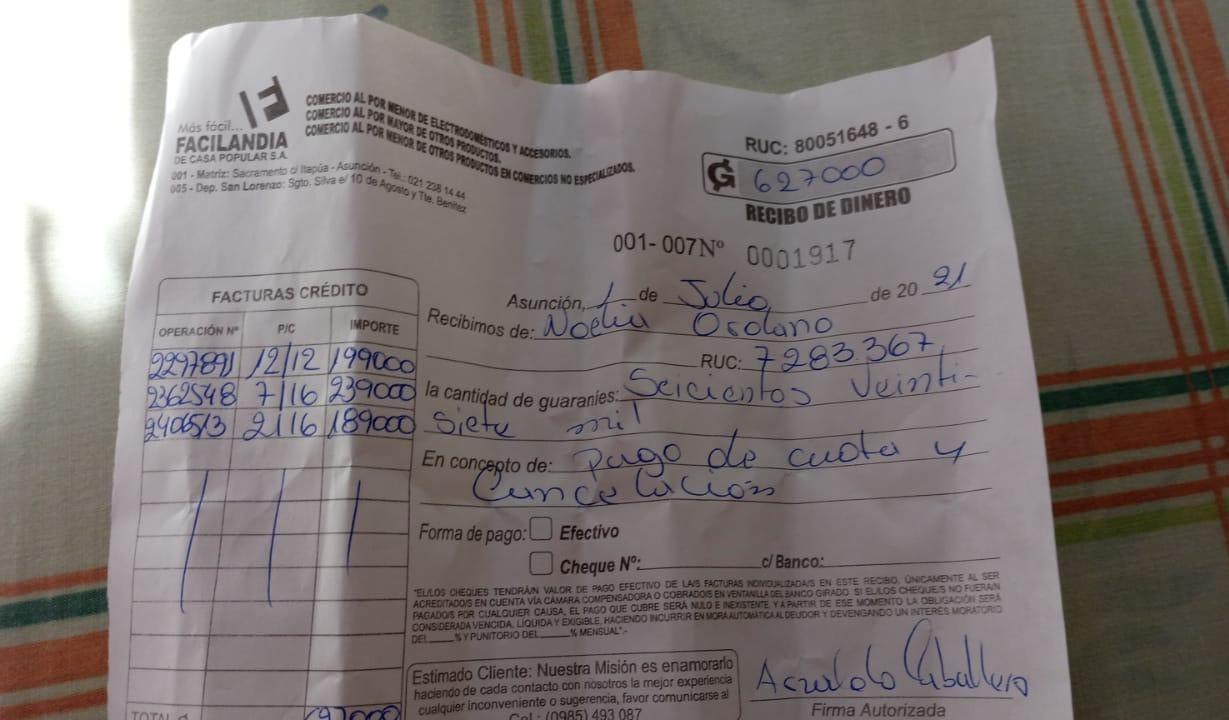 Más fácil...
FACILANDIA
DE CASA POPULAR S.A.
COMERCIO AL POR MENOR DE ELECTRODOMÉSTICOS Y ACCESORIOS.
COMERCIO AL POR MAYOR DE OTROS PRODUCTOS.
COMERCIO AL POR MENOR DE OTROS PRODUCTOS EN COMERCIOS NO ESPECIALIZADOS.
001 - Matriz: Sacramento c/ Itapúa - Asunción - Tel.: 021 238 14 44
005 - Dep. San Lorenzo: Sgto. Silva e/ 10 de Agosto y Tte. Benítez
RUC: 80051648 - 6
₲ 627000
RECIBO DE DINERO
001- 007 Nº 0001917
Asunción, 1 de Julio de 20 21
Recibimos de: Noelia
RUC: 7283.367
la cantidad de guaraníes: Seicientos Veinti-
siete mil
En concepto de: pago de cuota y
Cancelación
Forma de pago: Efectivo
Cheque Nº: c/ Banco:
"EL/LOS CHEQUES TENDRÁN VALOR DE PAGO EFECTIVO DE LA/S FACTURAS INDIVIDUALIZADA/S EN ESTE RECIBO, ÚNICAMENTE AL SER
ACREDITADO/S EN CUENTA VÍA CÁMARA COMPENSADORA O COBRADO/S EN VENTANILLA DEL BANCO GIRADO. SI EL/LOS CHEQUE/S NO FUERA/N
PAGADO/S POR CUALQUIER CAUSA, EL PAGO QUE CUBRE SERÁ NULO E INEXISTENTE, Y A PARTIR DE ESE MOMENTO LA OBLIGACIÓN SERÁ
CONSIDERADA VENCIDA, LÍQUIDA Y EXIGIBLE, HACIENDO INCURRIR EN MORA AUTOMÁTICA AL DEUDOR Y DEVENGANDO UN INTERÉS MORATORIO
DEL % Y PUNITORIO DEL % MENSUAL".-
FACTURAS CRÉDITO
OPERACIÓN Nº P/C IMPORTE
2297891 12/12 199000
2362548 7/16 239000
2406513 2/16 189000
TOTAL
Estimado Cliente: Nuestra Misión es enamorarlo
haciendo de cada contacto con nosotros la mejor experiencia
cualquier inconveniente o sugerencia, favor comunicarse al
Cel.: (0985) 493 087
Caballero
Firma Autorizada